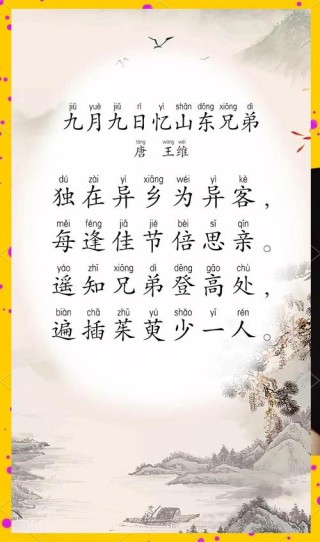 jiǔ yuè jiǔ rì yì shān dōng xiōng dì
九月九日忆山东兄弟
táng wáng wéi
唐 王维
dú zài yì xiāng wéi yì kè
独在异乡为异客，
měi féng jiā jié bèi sī qīn
每逢佳节倍思亲。
yáo zhī xiōng dì dēng gāo chù
遥知兄弟登高处，
biàn chā zhū yú shǎo yī rén
遍插茱萸少一人。